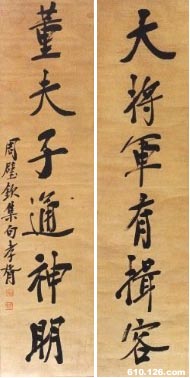 大將軍有揖客
董夫子通神明
周璧欽集句孝胥
610.126.com